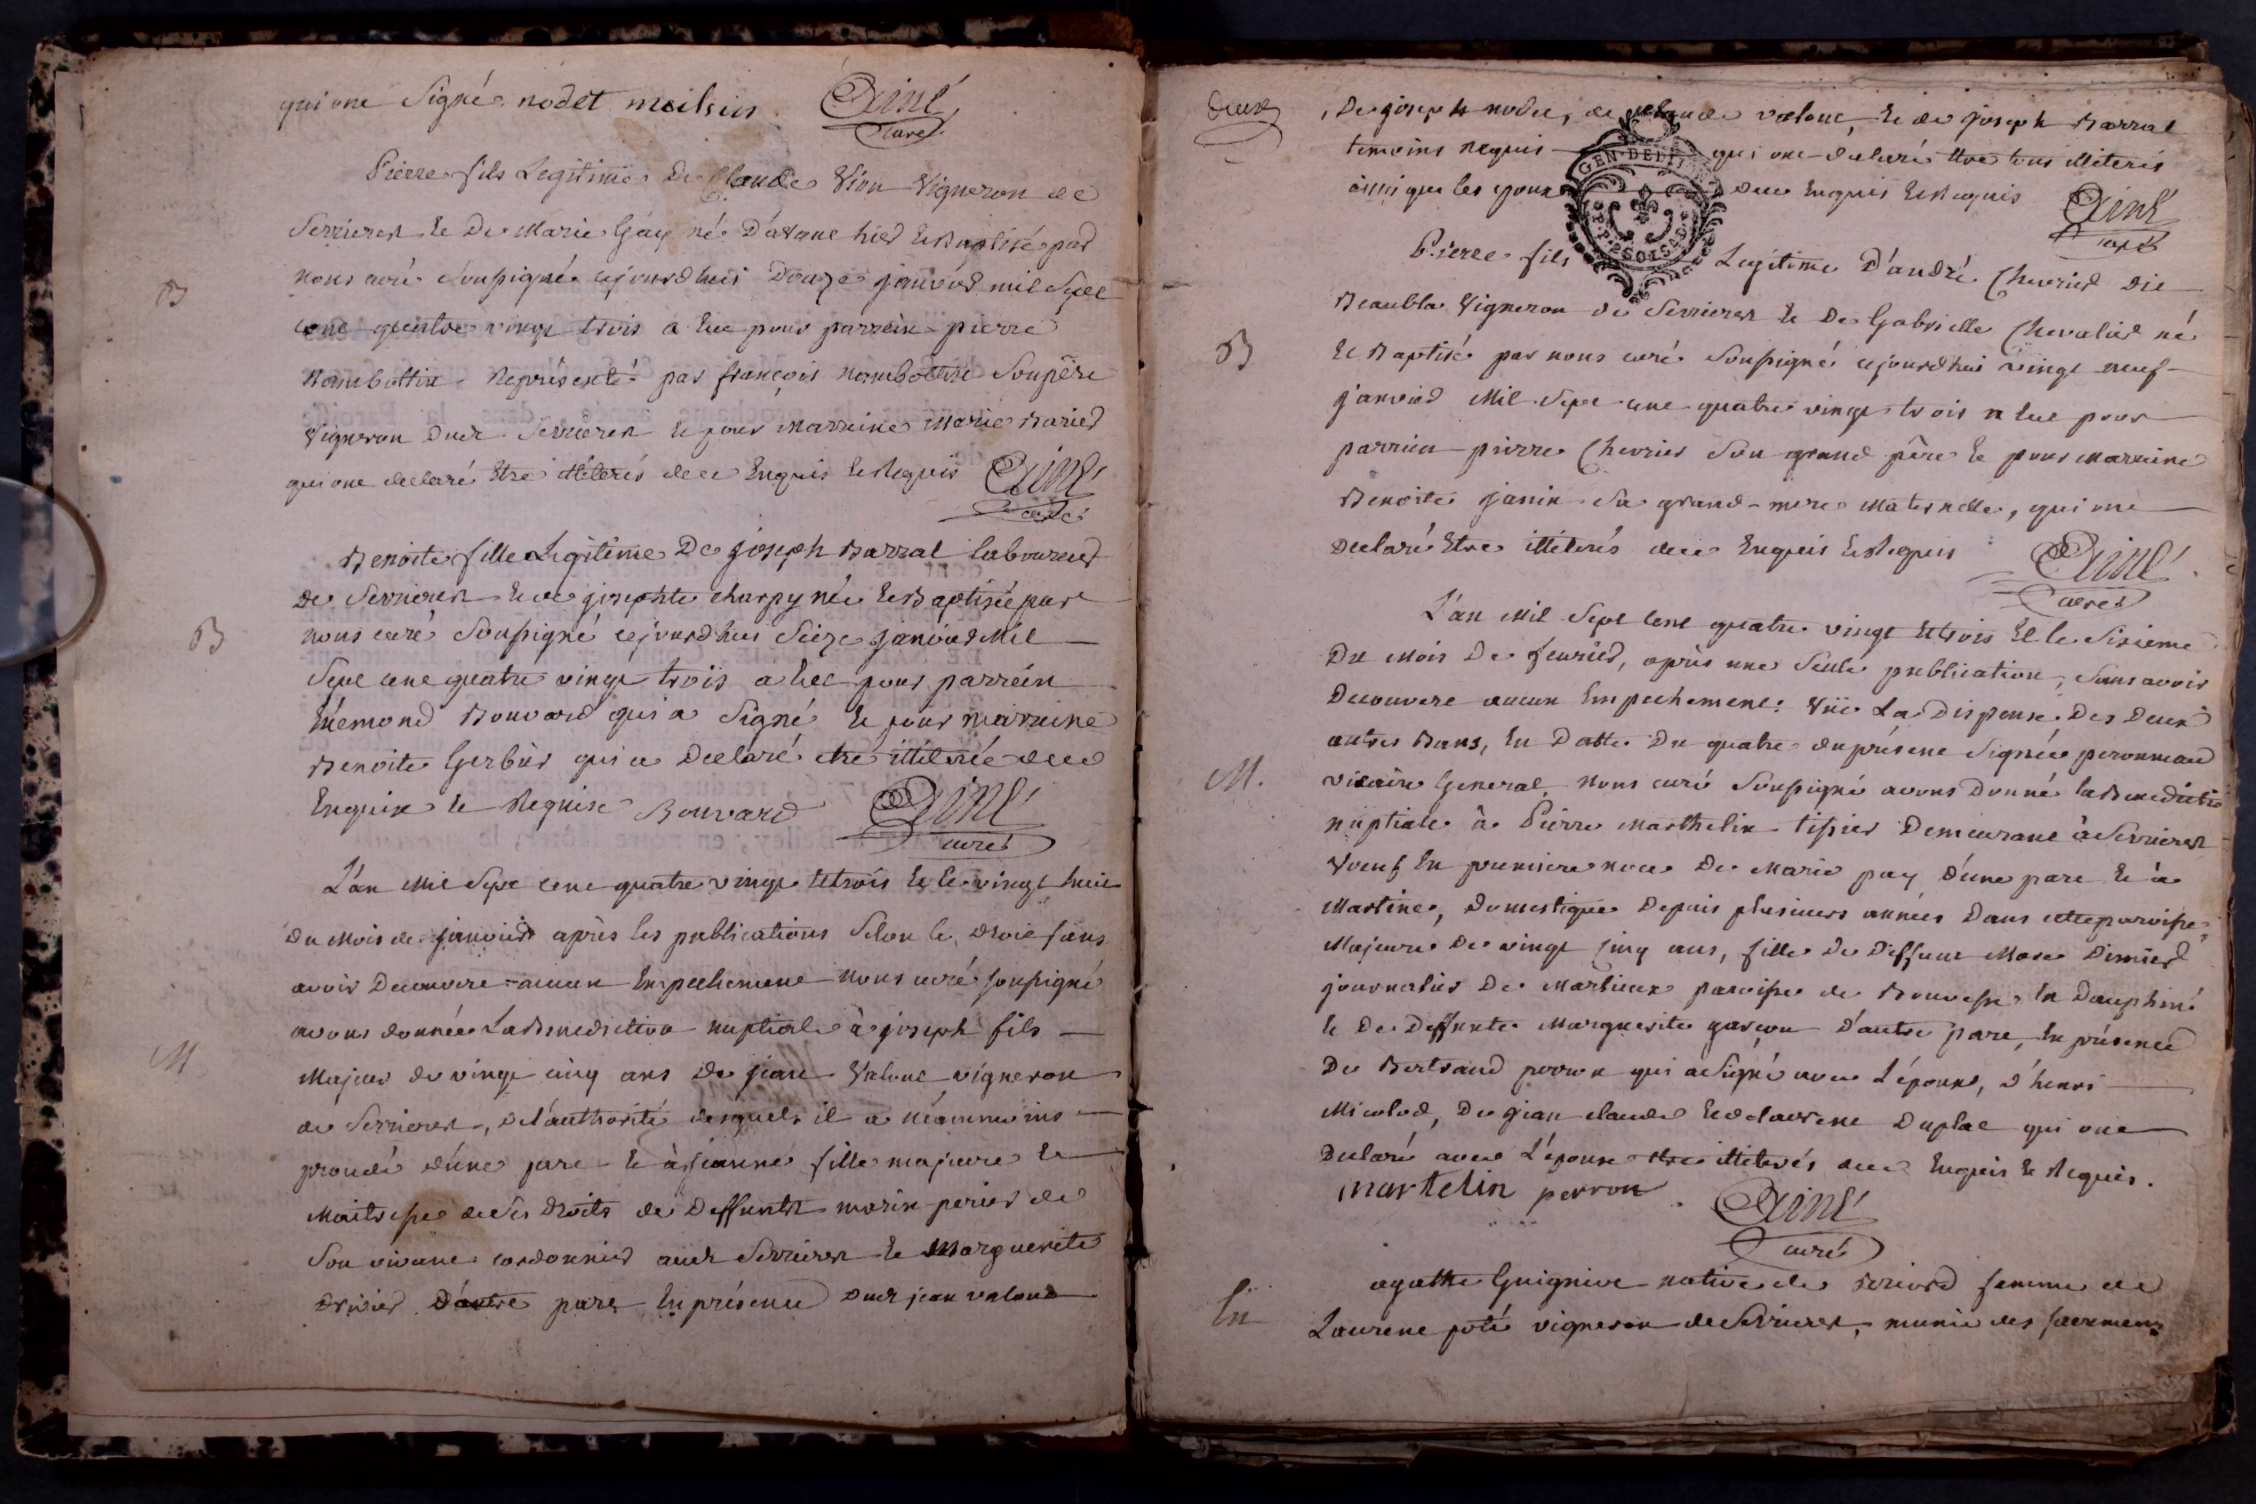 qui ont Signé. nodet meilsin Ainé
curé
Pierre fils Legitime De Claude Vion Vigneron de
Serrieres et De Marie Gay né D'avant hier et Baptisé par
nous curé Soussigné cejourdhui Douze janvier mil Sept
B
cent quatre vingt trois a Eu pour parrein pierre
Rambottin Représenté par françois Rambottin Soupère
Vigneron dudt Serrieres et pour Marreine Marie Barier
qui ont declaré Etre illiterés de ce Enquis et Requis Ainé
curé
Benoite fille Legitime De joseph Barral laboureur
De Serrieres et de josephte charpy née et Baptisée par
B
nous curé Soussigné cejourdhui Seize janvier Mil
Sept cent quatre vingt trois a Eu pour parrein
Enemond Bouvard qui a Signé et pour marraine
Benoite Gerbier qui a Declaré etre illiterée de ce
Enquise et Requise Bouvard Ainé
curé
L'an Mil Sept cent quatre vingt et trois et le vingt huit
du Mois de janvier après les publications Selon le Droit sans
avoir Decouvert aucun Empechement nous curé soussigné
avons donnée La Benediction nuptiale à joseph fils
M
Majeur de vingt cinq ans de jean Valouc vigneron
de Serrieres, de l'authorité desquels il a néanmoins
procedé d'une part et à jeanne fille majeure et
Maitresse de Ses Droits de Deffunts morin perier de
Son vivant cordonnier audt Serrieres et Marguerite
D'autre part En présence dudt jean valouc
Deux
, De joseph nodet, de claude valouc, et de joseph Barral
temoins Requis qui ont declaré Etre tous illiterés
ainsi que les Epoux de ce Enquis et Requis Ainé
curé
GEN. DELLI
Pierre fils Legitime D'andré Chevrier dit
Beaubla Vigneron de Serrieres et De Gabrielle Chevalier né
B
et Baptisé par nous curé Soussigné cejourdhui vingt neuf
janvier Mil Sept cent quatre vingt trois a Eu pour
parrien pierre Chevrier Son grand père et pour marreine
Benoite janin Sa grand-mere Maternelle, qui ont
Declaré Etre illiterés de ce Enquis et Requis Ainé
curé
L'an Mil Sept Cent quatre vingt et trois et le Sixieme
Du Mois De fevrier, après une Seule publication, Sans avoir
Decouvert aucun Empechement: Vüe La Dispense Des Deux
autres Bans, En Datte Du quatre du présent Signée peronneau
M.
vicaire General, nous curé Soussigné avons Donné la Benediction
nuptiale à Pierre Marthelin tissier Demeurant à Serrieres
Veuf En premiere noce De Marie pay D'une part et à
Martine, Domestique Depuis plusieurs années Dans cette paroisse,
Majeure De vingt Cinq ans, fille De Deffunt Marc Dimier
journalier De Marlieux paroisse de Bouvesse En Dauphiné
et De Deffunte Marguerite garçon D'autre part, En présence
De Bertrand perron qui a Signé avec L'époux, d'henri
Micoloud, De jean claude et de laurent Duplac qui ont
Declaré avec L'épouse Etre illiterés de ce Enquis et Requis.
martelin perron Ainé
curé
agathe Guignive native de Briord femme de
En
Laurent poté vigneron de Serrieres, munie des sacremens